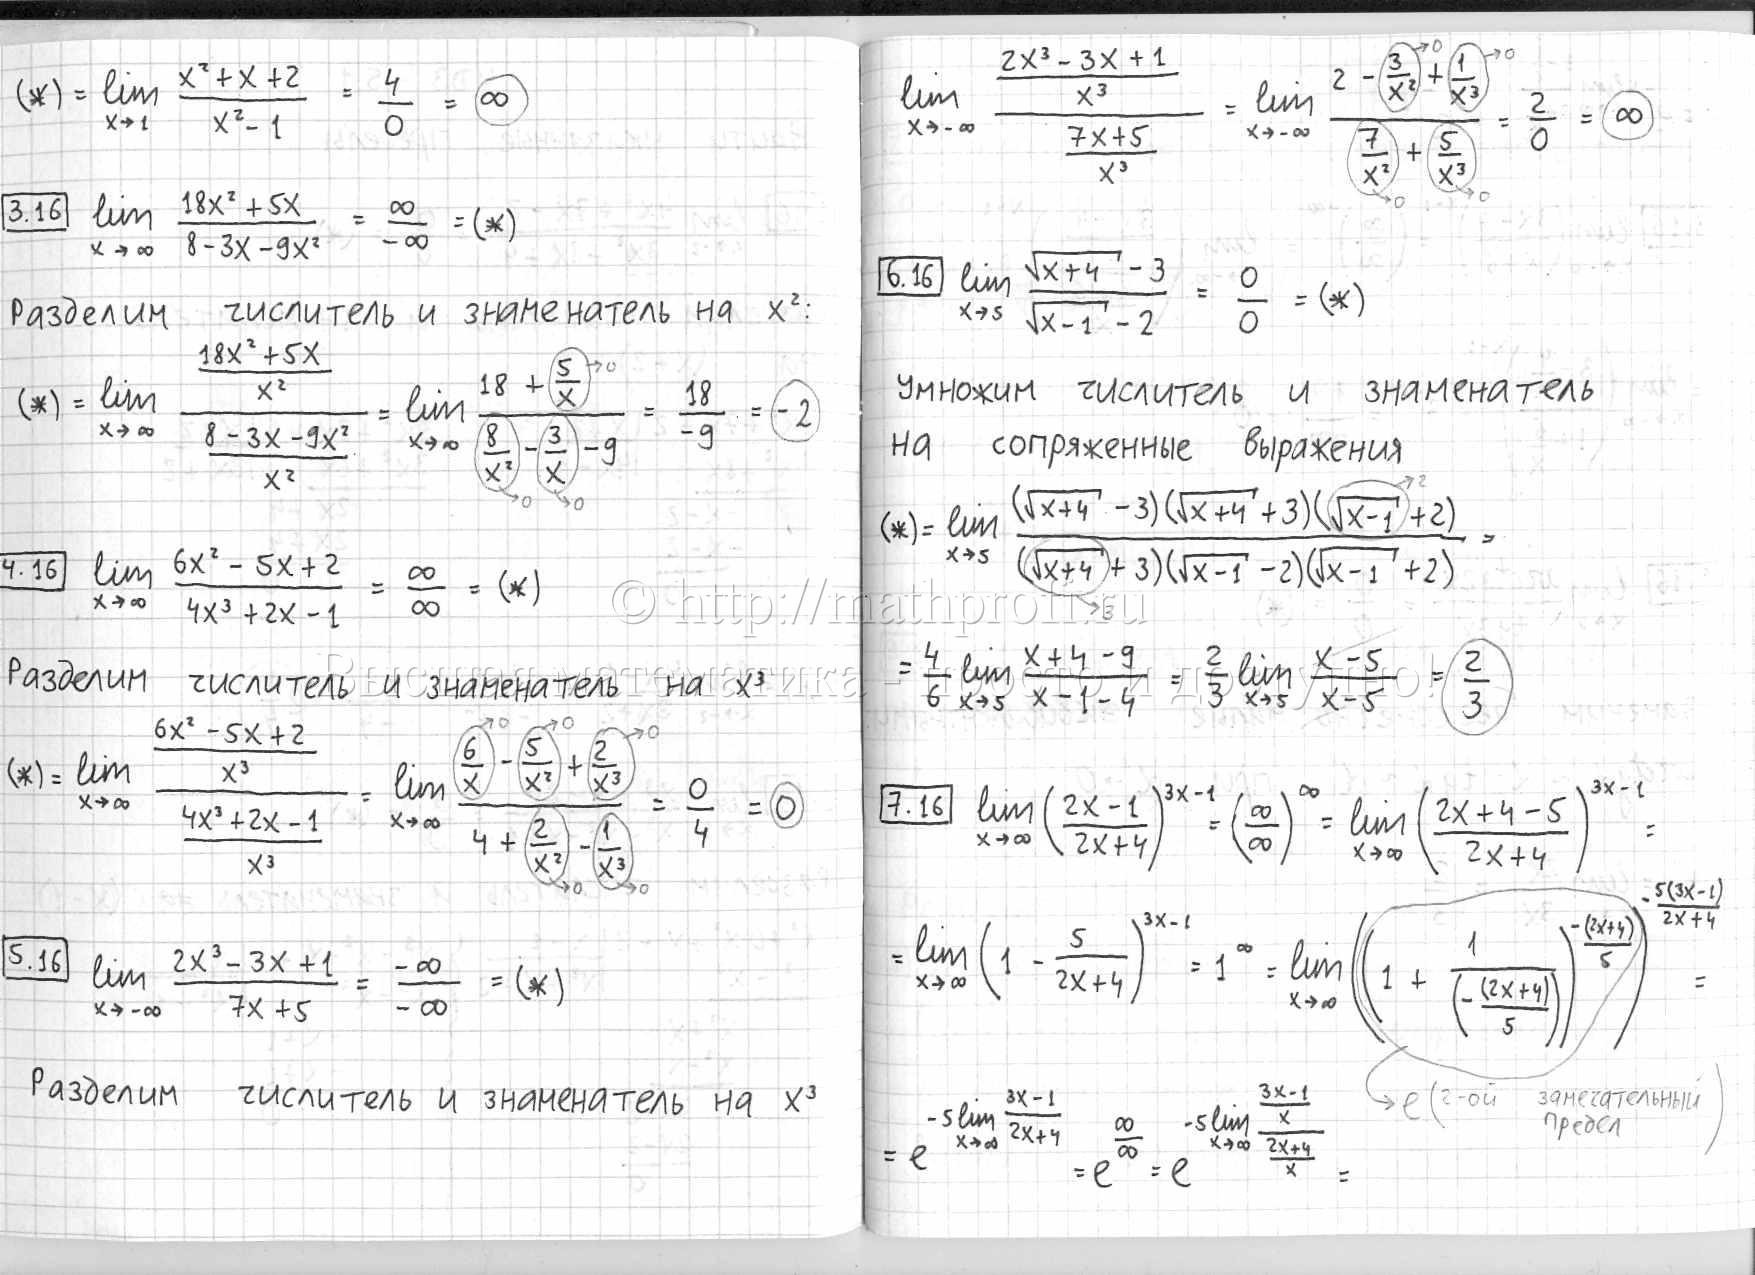 (*) = lim x→1 (x² + x + 2)/(x² - 1) = 4/0 = ∞
3.16 lim x→∞ (18x² + 5x)/(8 - 3x - 9x²) = ∞/-∞ = (*)
Разделим числитель и знаменатель на x²:
(*) = lim x→∞ ((18x² + 5x)/x²)/((8 - 3x - 9x²)/x²) = lim x→∞ (18 + 5/x →0)/(8/x² →0 - 3/x →0 - 9) = 18/-9 = -2
4.16 lim x→∞ (6x² - 5x + 2)/(4x³ + 2x - 1) = ∞/∞ = (*)
Разделим числитель и знаменатель на x³
(*) = lim x→∞ ((6x² - 5x + 2)/x³)/((4x³ + 2x - 1)/x³) = lim x→∞ (6/x →0 - 5/x² →0 + 2/x³ →0)/(4 + 2/x² →0 - 1/x³ →0) = 0/4 = 0
5.16 lim x→-∞ (2x³ - 3x + 1)/(7x + 5) = -∞/-∞ = (*)
Разделим числитель и знаменатель на x³
lim x→-∞ ((2x³ - 3x + 1)/x³)/((7x + 5)/x³) = lim x→-∞ (2 - 3/x² →0 + 1/x³ →0)/(7/x² →0 + 5/x³ →0) = 2/0 = ∞
6.16 lim x→5 (√(x+4) - 3)/(√(x-1) - 2) = 0/0 = (*)
Умножим числитель и знаменатель
на сопряженные выражения
(*) = lim x→5 ((√(x+4) - 3)(√(x+4) + 3)(√(x-1) →2 + 2))/((√(x+4) →3 + 3)(√(x-1) - 2)(√(x-1) + 2)) =
= 4/6 lim x→5 (x + 4 - 9)/(x - 1 - 4) = 2/3 lim x→5 (x - 5)/(x - 5) = 2/3
7.16 lim x→∞ ((2x - 1)/(2x + 4))^(3x-1) = (∞/∞)^∞ = lim x→∞ ((2x + 4 - 5)/(2x + 4))^(3x-1) =
= lim x→∞ (1 - 5/(2x + 4))^(3x-1) = 1^∞ = lim x→∞ ((1 + 1/(-(2x+4)/5))^(-(2x+4)/5))^(-5(3x-1)/(2x+4)) =
→ e (2-ой замечательный
предел)
= e^(-5 lim x→∞ (3x-1)/(2x+4)) = e^(∞/∞) = e^(-5 lim x→∞ ((3x-1)/x)/((2x+4)/x)) =
© http://mathprofi.ru
Высшая математика - просто и доступно!